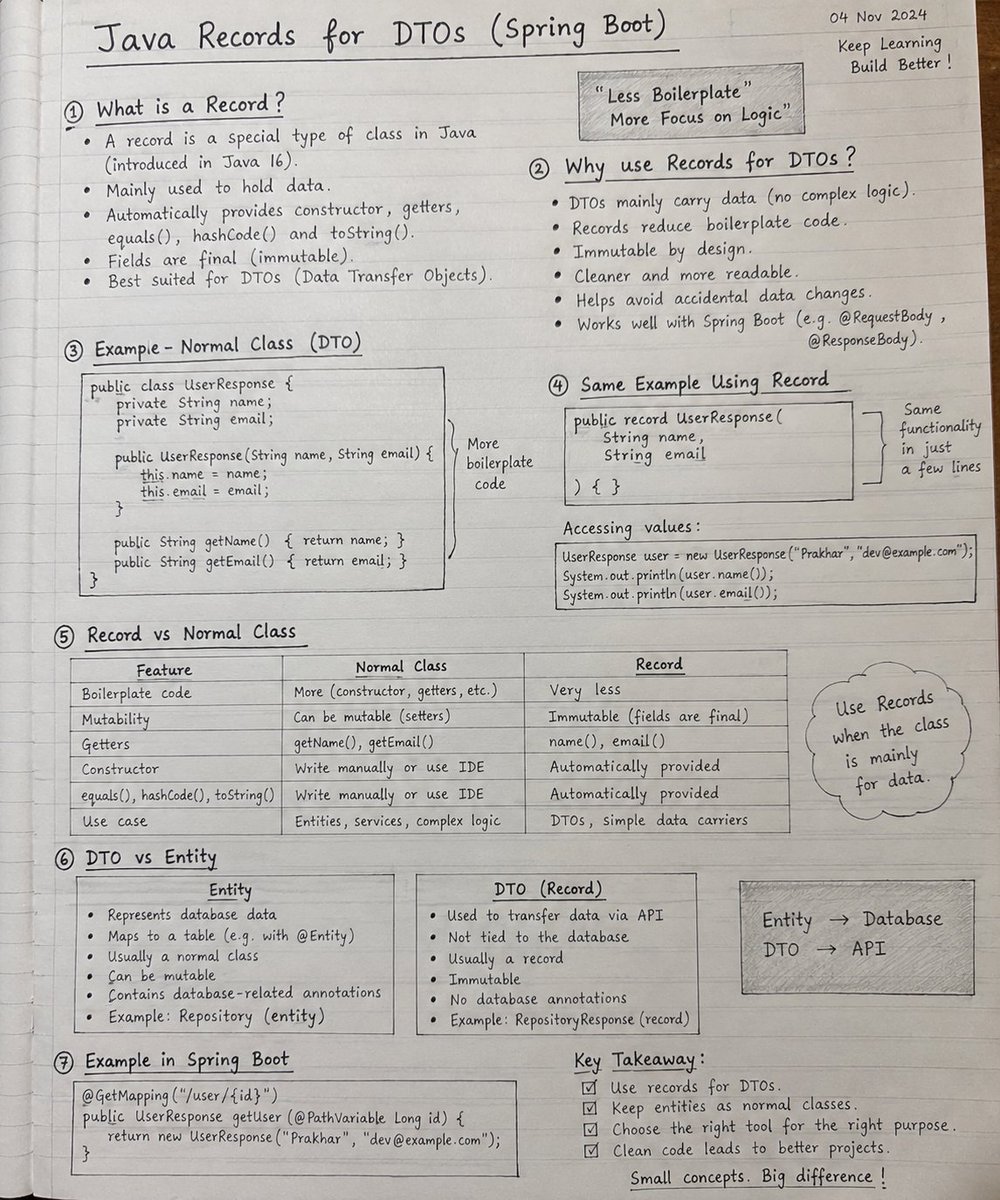 Java Records for DTOs (Spring Boot)
04 Nov 2024
Keep Learning
Build Better!
"Less Boilerplate"
More Focus on Logic"
① What is a Record?
• A record is a special type of class in Java
(introduced in Java 16).
• Mainly used to hold data.
• Automatically provides constructor, getters,
equals(), hashCode() and toString().
• Fields are final (immutable).
• Best suited for DTOs (Data Transfer Objects).
② Why use Records for DTOs?
• DTOs mainly carry data (no complex logic).
• Records reduce boilerplate code.
• Immutable by design.
• Cleaner and more readable.
• Helps avoid accidental data changes.
• Works well with Spring Boot (e.g. @RequestBody,
@ResponseBody).
③ Example - Normal Class (DTO)
public class UserResponse {
private String name;
private String email;
public UserResponse(String name, String email) {
this.name = name;
this.email = email;
}
public String getName() { return name; }
public String getEmail() { return email; }
}
More
boilerplate
code
④ Same Example Using Record
public record UserResponse(
String name,
String email
) { }
Same
functionality
in just
a few lines
Accessing values:
UserResponse user = new UserResponse("Prakhar", "dev@example.com");
System.out.println(user.name());
System.out.println(user.email());
⑤ Record vs Normal Class
Feature Normal Class Record
Boilerplate code More (constructor, getters, etc.) Very less
Mutability Can be mutable (setters) Immutable (fields are final)
Getters getName(), getEmail() name(), email()
Constructor Write manually or use IDE Automatically provided
equals(), hashCode(), toString() Write manually or use IDE Automatically provided
Use case Entities, services, complex logic DTOs, simple data carriers
Use Records
when the class
is mainly
for data.
⑥ DTO vs Entity
Entity
• Represents database data
• Maps to a table (e.g. with @Entity)
• Usually a normal class
• Can be mutable
• Contains database-related annotations
• Example: Repository (entity)
DTO (Record)
• Used to transfer data via API
• Not tied to the database
• Usually a record
• Immutable
• No database annotations
• Example: RepositoryResponse (record)
Entity → Database
DTO → API
⑦ Example in Spring Boot
@GetMapping("/user/{id}")
public UserResponse getUser (@PathVariable Long id) {
return new UserResponse("Prakhar", "dev@example.com");
}
Key Takeaway:
☑ Use records for DTOs.
☑ Keep entities as normal classes.
☑ Choose the right tool for the right purpose.
☑ Clean code leads to better projects.
Small concepts. Big difference!